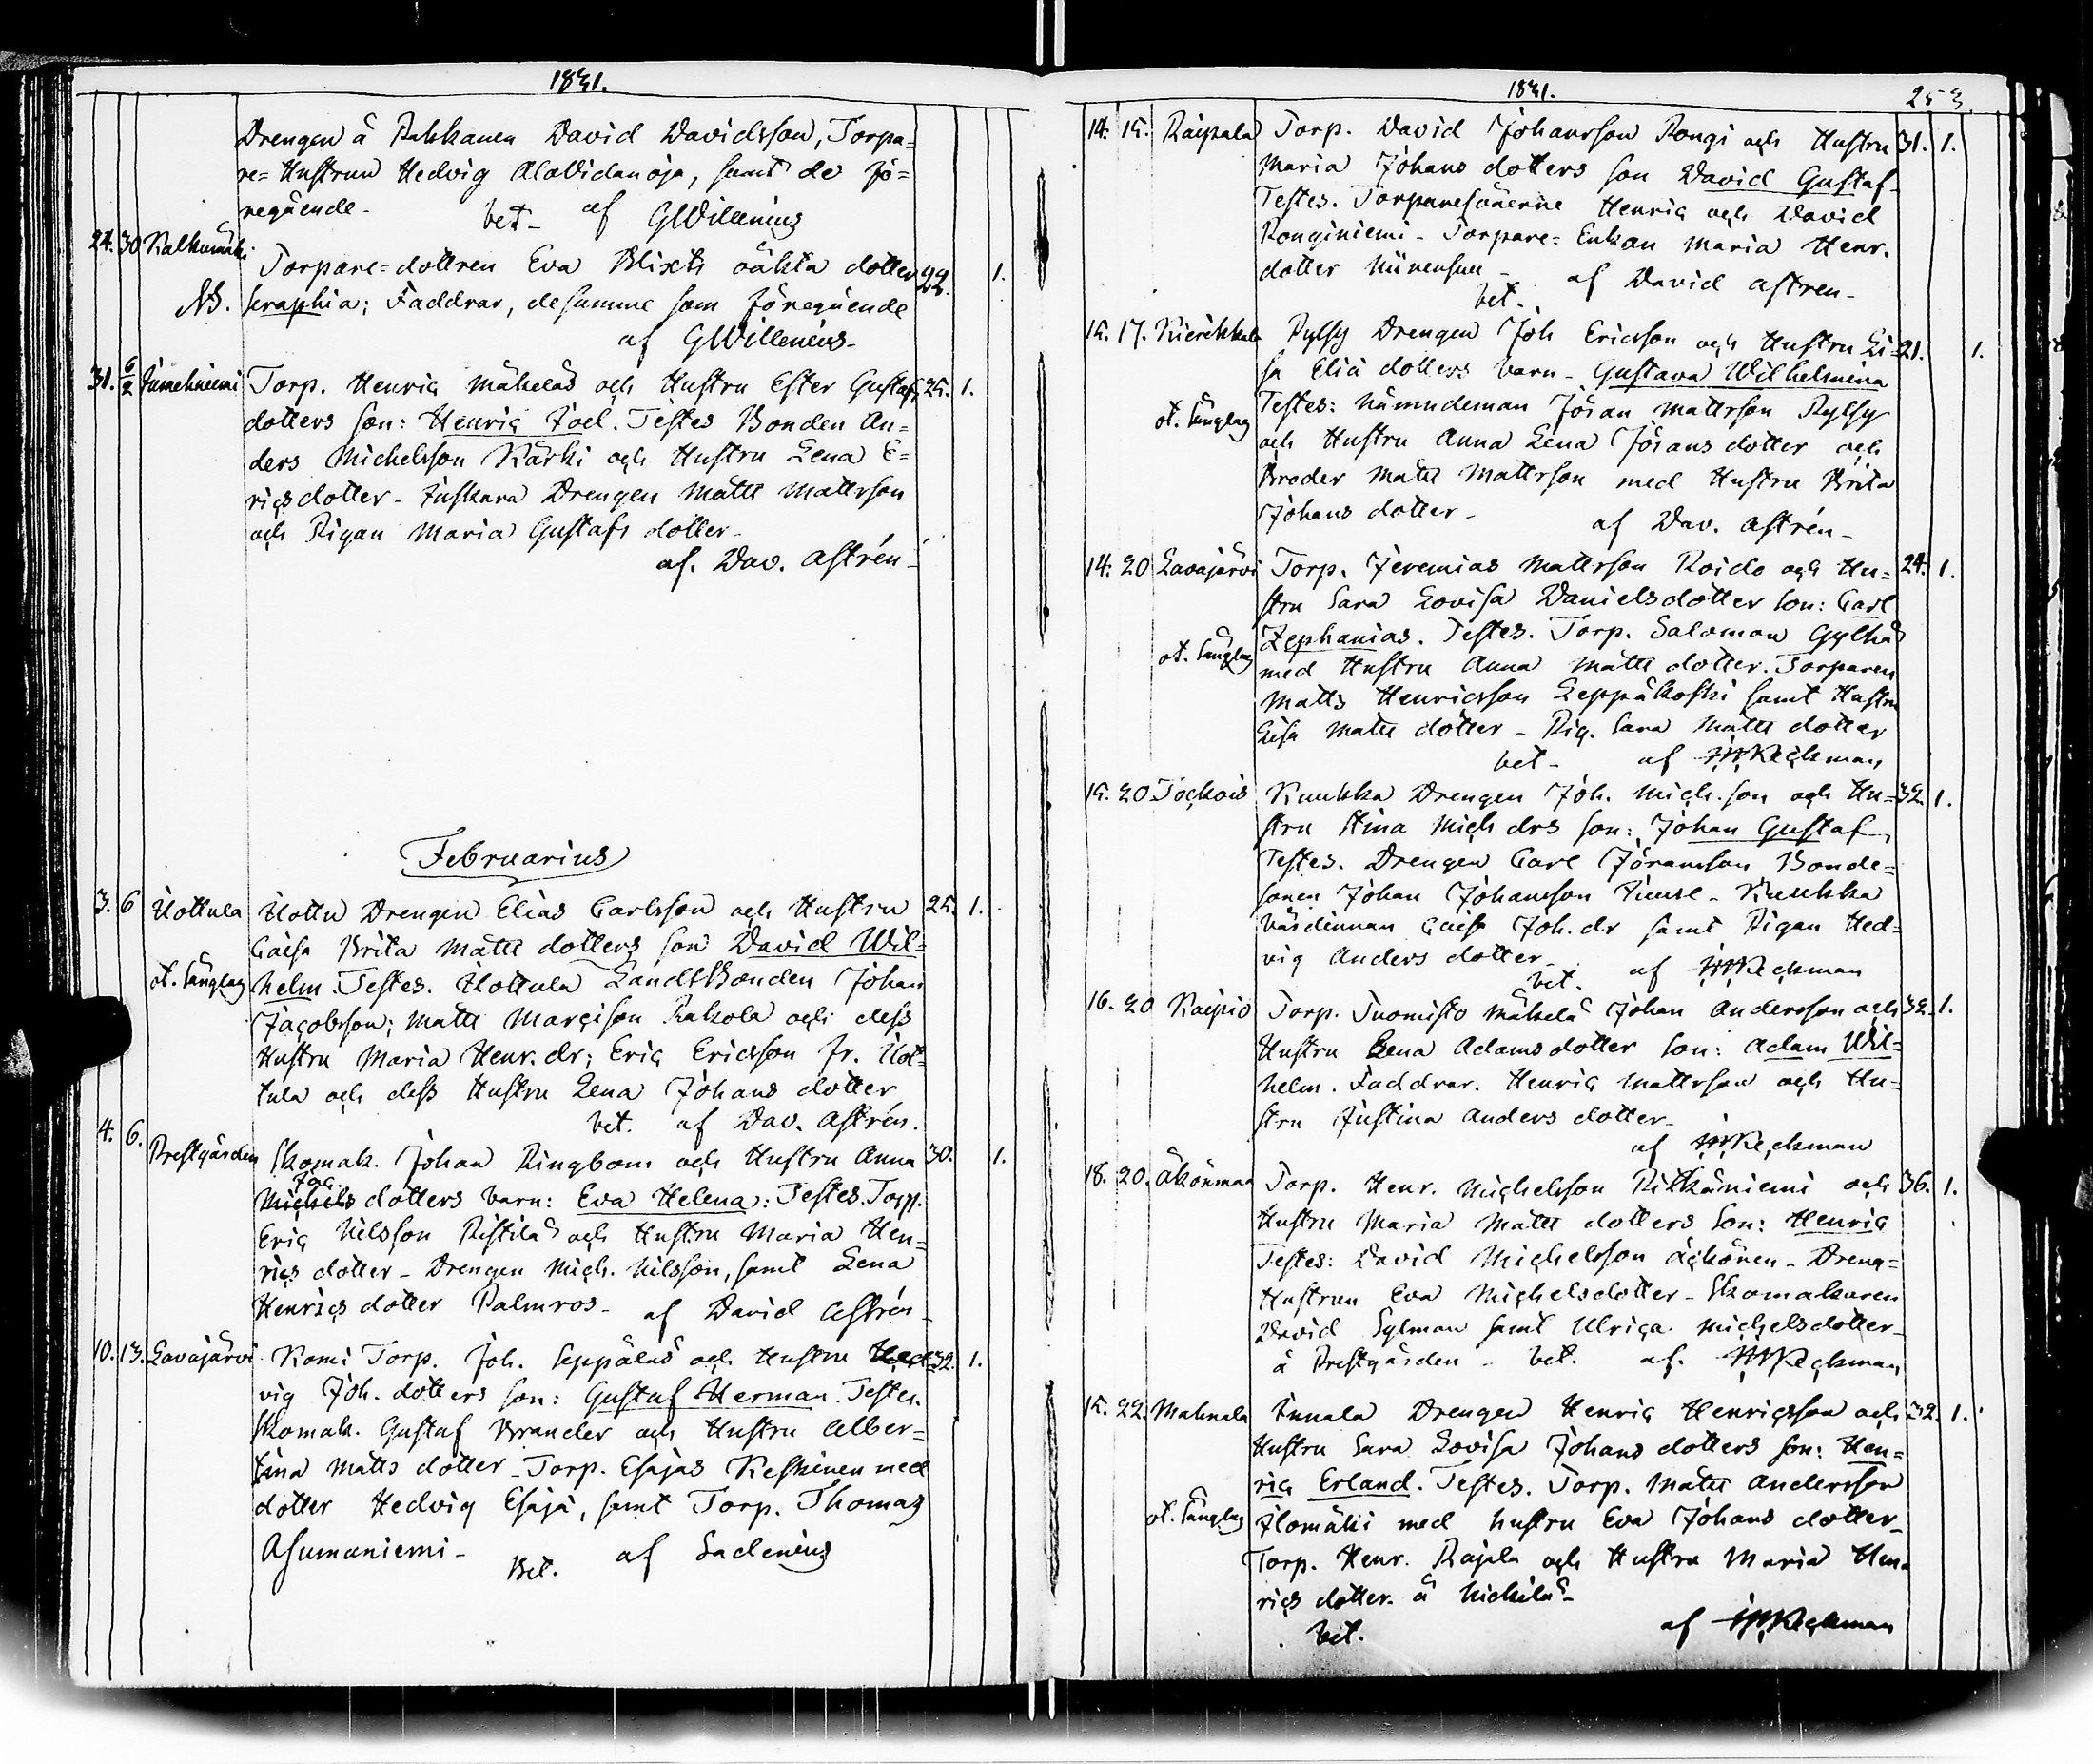 1831.
Drengen å Pakkanen David Davidsson, Torpa=
re=Hustrun Hedvig AlaVidanoja, samt de fö=
regående - bet - af GWillenius
24. 30 Kalkumäki Torpare=dottren Eva Blixts oäkta dotter 22. 1.
NB. Seraphia; Faddrar, desamme som föregående
af GWillenius -
31. 6/2 Jumehniemi Torp. Henric Mäkelä och Hustru Ester Gustafs 25. 1.
dotters son: Henric Joel. Testes Bonden An=
ders Michelsson Kärki och Hustru Lena E=
ricsdotter - Juskara Drengen Matts Mattsson
och Pigan Maria Gustafs dotter -
af. Dav. Astrén -
Februarius
3. 6 Uottula Uottu Drengen Elias Carlsson och Hustru 25. 1.
Caisa Brita Matts dotters son David Wil=
ot. Sänglag helm. Testes. Uottula Landtbonden Johan
Jacobsson; Matts Marcisson Rakola och dess
Hustru Maria Henr. dr; Eric Ericsson fr. Uot=
tula och dess Hustru Lena Johans dotter
bet. af Dav. Astrén.
4. 6. Prestgården Skomak. Johan Ringbom och Hustru Anna 30. 1.
Jac.
Michels dotters barn: Eva Helena: Testes. Torp.
Eric Nilsson Ristilä och Hustru Maria Hen=
rics dotter - Drengen Mich. Nilsson, samt Lena
Henrics dotter Palmros - af David Astrén -
10. 13. Lavajärvi Komi Torp. Joh. Seppälä och Hustru Hed= 32. 1.
vig Joh. dotters son: Gustaf Herman. Testes.
Skomak. Gustaf Brander och Hustru Alber=
tina Matts dotter - Torp. Esajas Keskinen med
dotter Hedvig Esajä, samt Torp. Thomas
Asumaniemi - Bet. af Sadenius
1831. 253
14. 15. Raipala Torp. David Johansson Pongi och Hustru 31. 1.
Maria Johans dotters son David Gustaf -
Testes. Torparesönerne Henric och David
Ronginiemi - Torpare=Enkan Maria Henr.
dotter
bet. af David Astren -
15. 17. Kierikkala Pylsy Drengen Joh Ericsson och Hustru Li= 21. 1.
sa Eliä dotters barn - Gustava Wilhelmina
ot. Sänglag Testes: Nämndeman Jöran Mattsson Pylsy
och Hustru Anna Lena Jörans dotter och
Broder Matts Mattsson med Hustru Brita
Johans dotter - af Dav. Astrén -
14. 20 Lavajärvi Torp. Jeremias Mattsson Koido och Hu= 24. 1.
stru Sara Lovisa Danielsdotter son: Carl
ot. Sänglag Zephanias. Testes. Torp. Salomon Gylhä
med Hustru Anna Matts dotter. Torparen
Matts Henricsson Leppäkoski samt Hustru
Lisa Matts dotter - Pig. Sara Matts dotter
bet - af Heckman
15. 20 Tockois Kuukka Drengen Joh. Mich. son och Hu= 32. 1.
stru Stina Mich drs son: Johan Gustaf -
Testes. Drengen Carl Jöransson Bonde=
sonen Johan Johansson - Kuukka
Värdinnan Caisa Joh. dr samt Pigan Hed=
vig Anders dotter -
bet. af Heckman
16. 20 Kaipio Torp. Tuomisto Mäkelä Johan Andersson och 32. 1.
Hustru Lena Adamsdotter son: Adam Wil=
helm. Faddrar. Henric Mattsson och Hu=
stru Justina Anders dotter -
af Heckman
18. 20. Äkönmaa Torp. Henr. Michelsson Pitkäniemi och 36. 1.
Hustru Maria Matts dotters son: Henric
Testes: David Michelsson Äckönen - Dreng=
Hustrun Eva Michelsdotter - Skomakaren
David Sylman samt Ulrica Michelsdotter -
å Prestgården - bet. af. Heckman
15. 22. Mahnala Junala Drengen Henric Henricsson och 32. 1.
Hustru Sara Lovisa Johans dotters son: Hen=
ric Erland. Testes. Torp. Matts Andersson
ot. Sänglag Ilomäki med hustru Eva Johans dotter -
Torp. Henr. Rajala och Hustru Maria Hen=
rics dotter å Nickilä -
bet. af Heckman